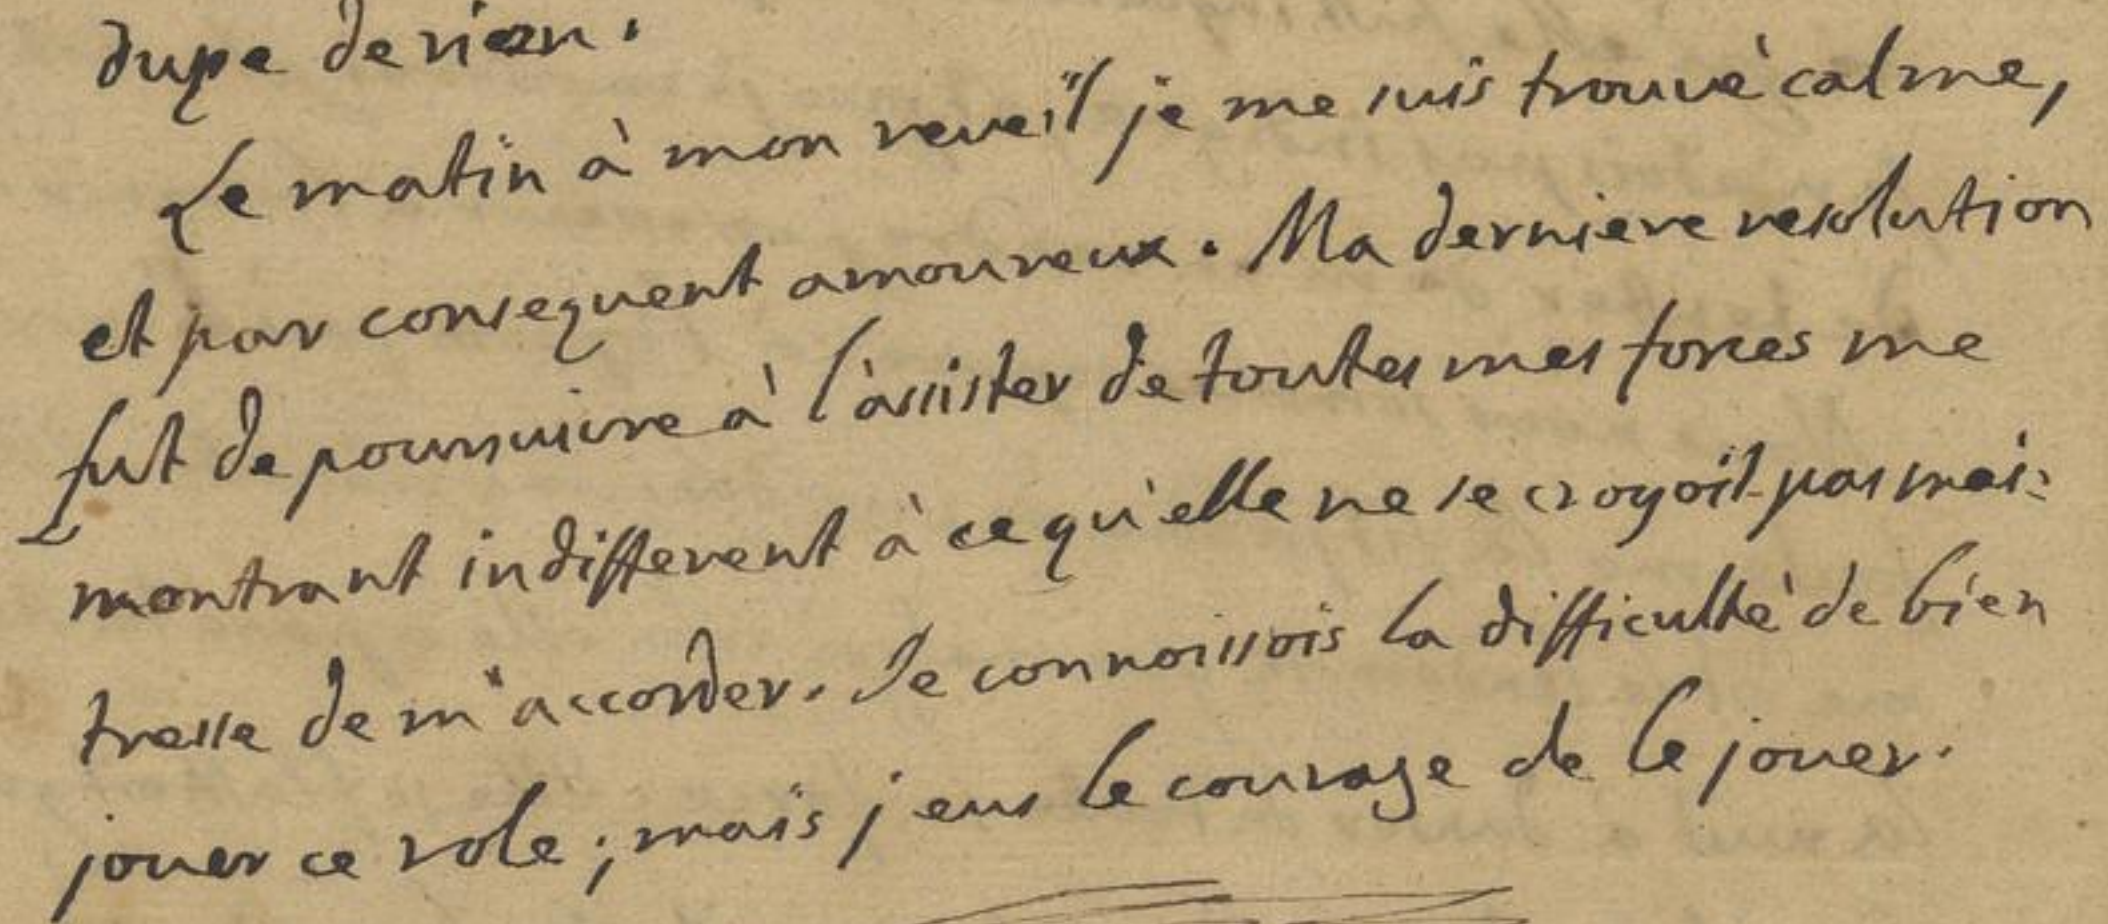 dupe de rien.
Le matin à mon reveil je me suis trouvé calme,
et par consequent amoureux. Ma derniere resolution
fut de poursuivre à l'assister de toutes mes forces me
montrant indifferent à ce qu'elle ne se croyoit pas mai=
tresse de m'accorder. Je connoissois la difficulté de bien
jouer ce role ; mais j'eus le courage de le jouer.